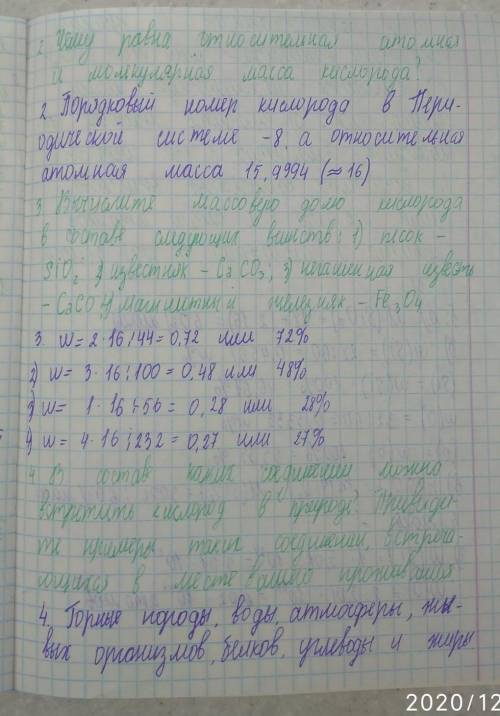 2 Чему равна относительная атомная
и молекулярная масса кислорода?
2. Порядковый номер кислорода в Пери-
одической системе -8, а относительная
атомная масса 15,9994 (≈16)
3. Вычислите массовую долю кислорода
в составе следующих веществ: 1) песок -
SiO2; 2) известняк - CaCO3; 3) негашенная известь
- CaO 4) магнитный железняк - Fe3O4
3. w= 2·16:44=0,72 или 72%
2) w= 3·16:100=0,48 или 48%
3) w= 1·16:56= 0,28 или 28%
4) w= 4·16:232=0,27 или 27%
4 В состав каких соединений можно
встретить кислород в природе? Приведи-
те примеры таких соединений, встреча-
ющихся в месте вашего проживания
4. Горные породы, воды, атмосферы, жи-
вых организмов, белков, углеводы и жиры
2020/12